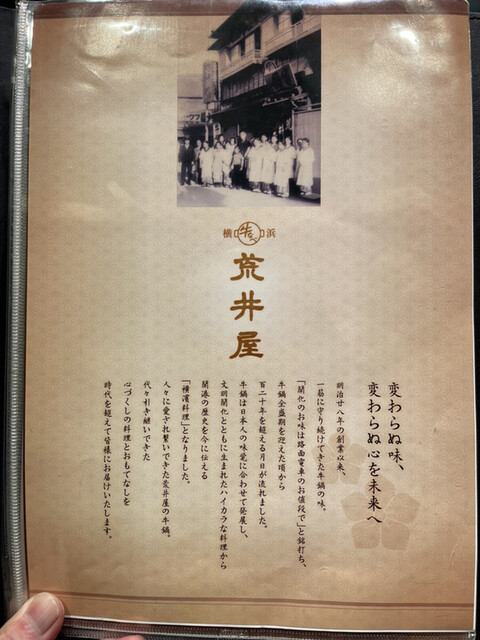 横 牛なべ 浜
荒井屋
変わらぬ味、
変わらぬ心を未来へ
明治廿八年の創業以来、
一筋に守り続けてきた牛鍋の味。
「開化のお味は路面電車のお値段で」と銘打ち、
牛鍋全盛期を迎えた頃から
百二十年を超える月日が流れました。
牛鍋は日本人の味覚に合わせて発展し、
文明開化とともに生まれたハイカラな料理から
開港の歴史を今に伝える
「横濱料理」となりました。
人々に愛され繋いできた荒井屋の牛鍋。
代々引き継いできた
心づくしの料理とおもてなしを
時代を超えて皆様にお届けいたします。